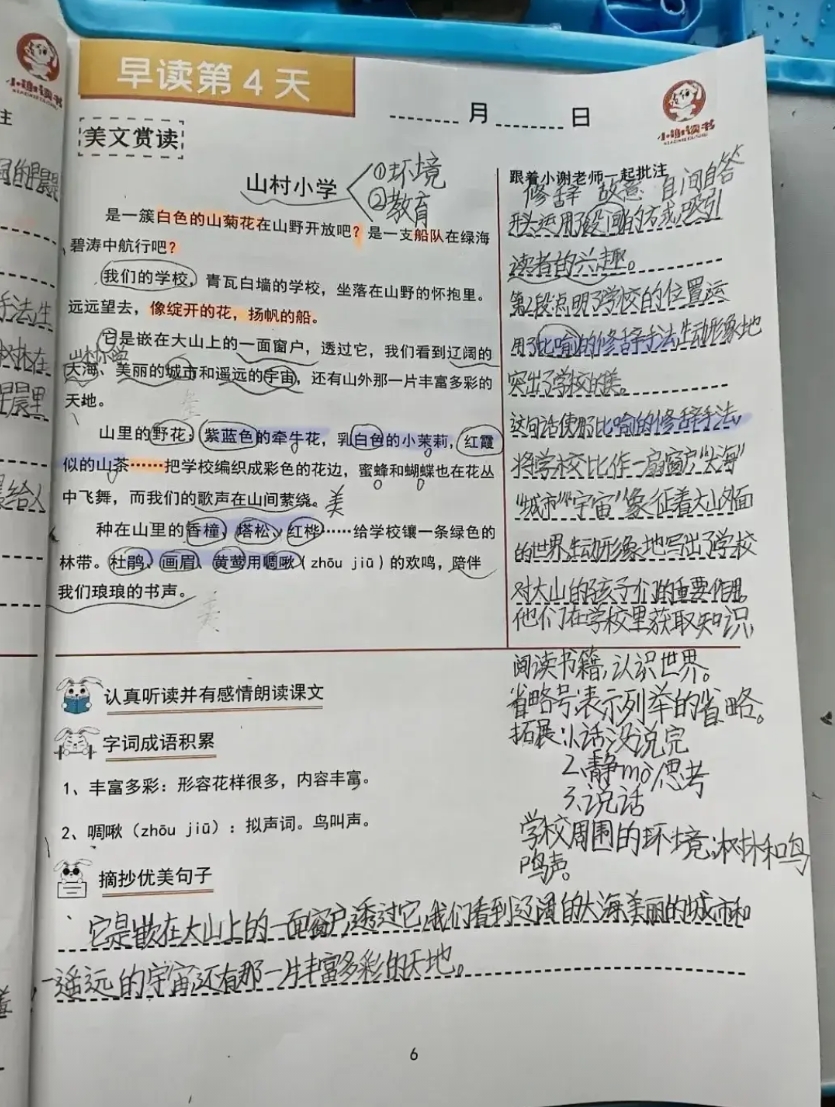 早读第4天
月 日
小谢读书
美文赏读
山村小学
①环境
②教育
是一簇白色的山菊花在山野开放吧？是一支船队在绿海
碧涛中航行吧？
我们的学校，青瓦白墙的学校，坐落在山野的怀抱里。
远远望去，像绽开的花，扬帆的船。
它是嵌在大山上的一面窗户，透过它，我们看到辽阔的
山村小学
大海、美丽的城市和遥远的宇宙，还有山外那一片丰富多彩的
天地。
山里的野花：紫蓝色的牵牛花，乳白色的小茉莉，红霞
似的山茶……把学校编织成彩色的花边，蜜蜂和蝴蝶也在花丛
中飞舞，而我们的歌声在山间萦绕。美
种在山里的香橦、塔松、红桦……给学校镶一条绿色的
林带。杜鹃、画眉、黄莺用啁啾（zhōu jiū）的欢鸣，陪伴
我们琅琅的书声。
美
跟着小谢老师一起批注
修辞 故意 自问自答
开头运用了设问的方式，吸引
读者的兴趣。
第2段点明了学校的位置运
用了比喻的修辞手法生动形象地
突出了学校的美。
这句话使用比喻的修辞手法，
将学校比作一扇窗户"大海"
"城市""宇宙"象征着大山外面
的世界，生动形象地写出了学校
对大山的孩子们的重要作用。
他们在学校里获取知识，
阅读书籍，认识世界。
省略号：表示列举的省略。
拓展：1.话没说完
2.静mò/思考
3.说话
学校周围的环境：树林和鸟
鸣声。
认真听读并有感情朗读课文
字词成语积累
1、丰富多彩：形容花样很多，内容丰富。
2、啁啾（zhōu jiū）：拟声词。鸟叫声。
摘抄优美句子
它是嵌在大山上的一面窗户，透过它，我们看到辽阔的大海，美丽的城市和
遥远的宇宙，还有那一片丰富多彩的天地。
6